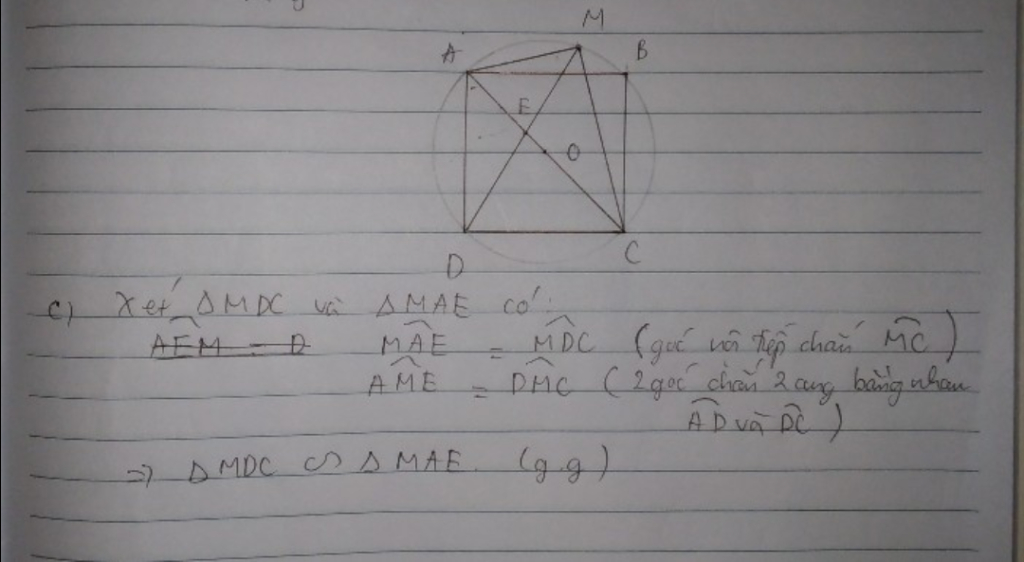 M
A B
E
O
D C
c) Xét ΔMDC và ΔMAE có:
A͡EM = D M͡AE = M͡DC (góc nội tiếp chắn M͡C)
A͡ME = D͡MC (2 góc chắn 2 cung bằng nhau
A͡D và D͡C)
=> ΔMDC ∽ ΔMAE. (g.g)